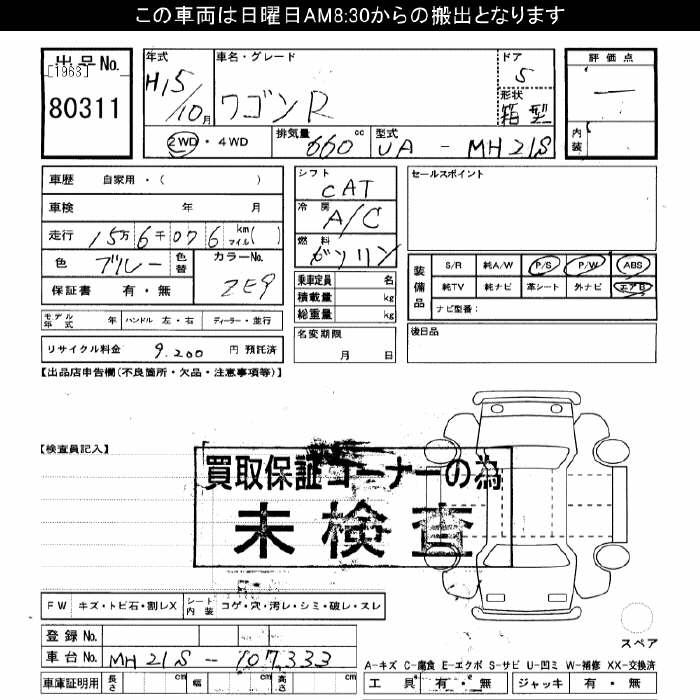 この車両は日曜日AM8:30からの搬出となります
出品No.
[1963]
80311
年式 H15/10月
車名・グレード ワゴンR
ドア 5
形状 箱型
評価点 —
内装
2WD・4WD
排気量 660 cc
型式 UA - MH21S
車歴 自家用・( )
車検 年 月
走行 15万6千076 km マイル( )
色 ブルー 色替
カラーNo. ZE9
保証書 有・無
モデル年式 年 ハンドル 左・右 ディーラー・並行
リサイクル料金 9,200 円 預託済
シフト CAT
冷房 A/C
燃料 ガソリン
乗車定員 名
積載量 kg
総重量 kg
名変期限
月 日
セールスポイント
装備品
S/R 純A/W P/S P/W ABS
純TV 純ナビ 革シート 外ナビ エアB
ナビ型番:
後日品
【出品店申告欄(不良箇所・欠品・注意事項等)】
【検査員記入】
買取保証コーナーの為
未検査
FW キズ・トビ石・割レX シート内装 コゲ・穴・汚レ・シミ・破レ・スレ
登録No.
車台No. MH21S - 107333
車庫証明用 長さ cm 幅 cm 高さ cm
スペア
A-キズ C-腐食 E-エクボ S-サビ U-凹ミ W-補修 XX-交換済
工具 有・無 ジャッキ 有・無